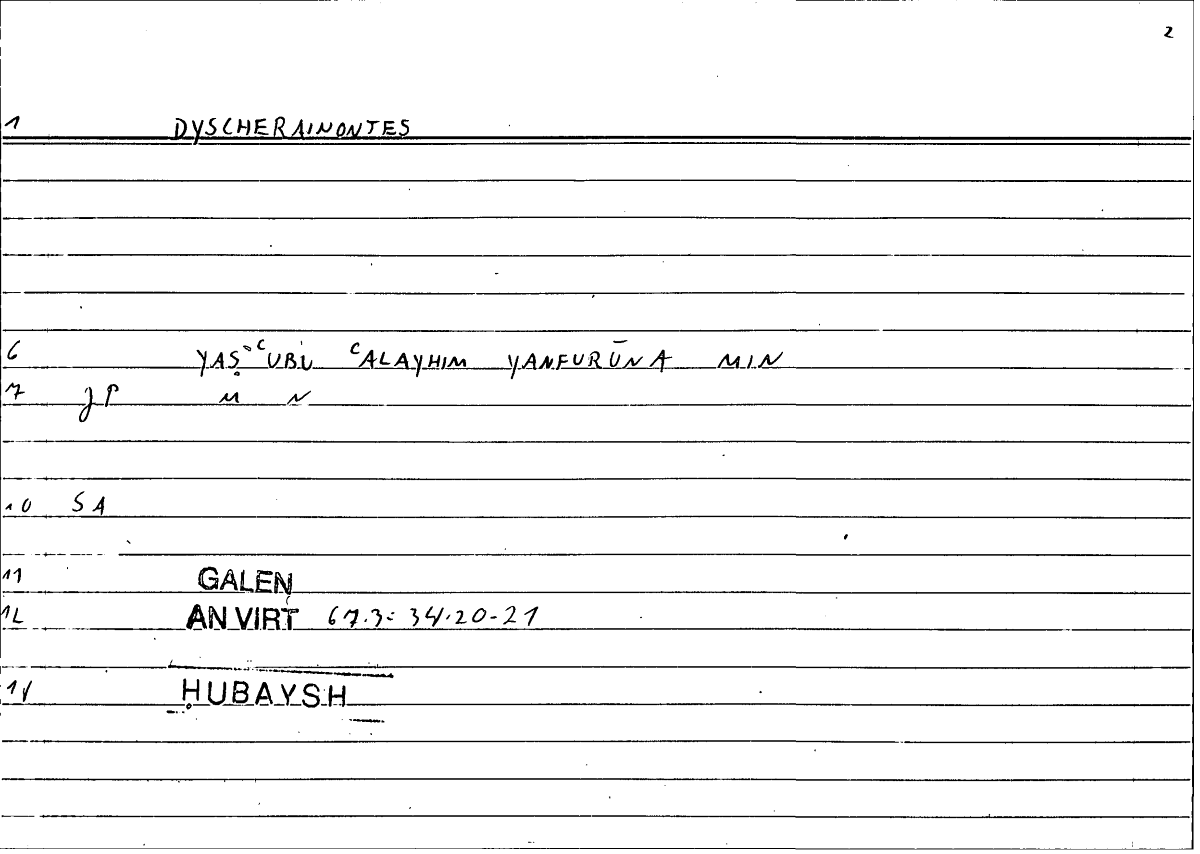 2
1 DYSCHERAINONTES
6 YAṢʿUBU ʿALAYHIM YANFURŪNA MIN
7 JP M N
10 SA
11 GALEN
12 AN VIRT 67.3= 34.20-21
14 ḤUBAYSH